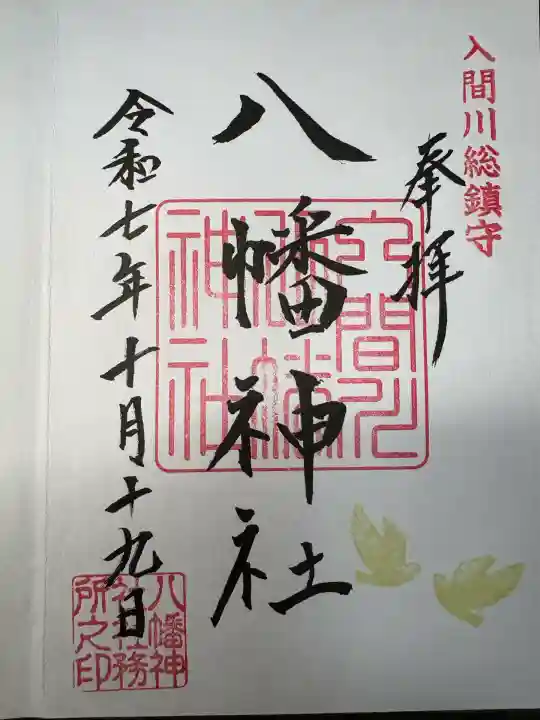 入間川総鎮守
奉拝
八幡神社
令和七年十月十九日
八幡神
社社務
所之印